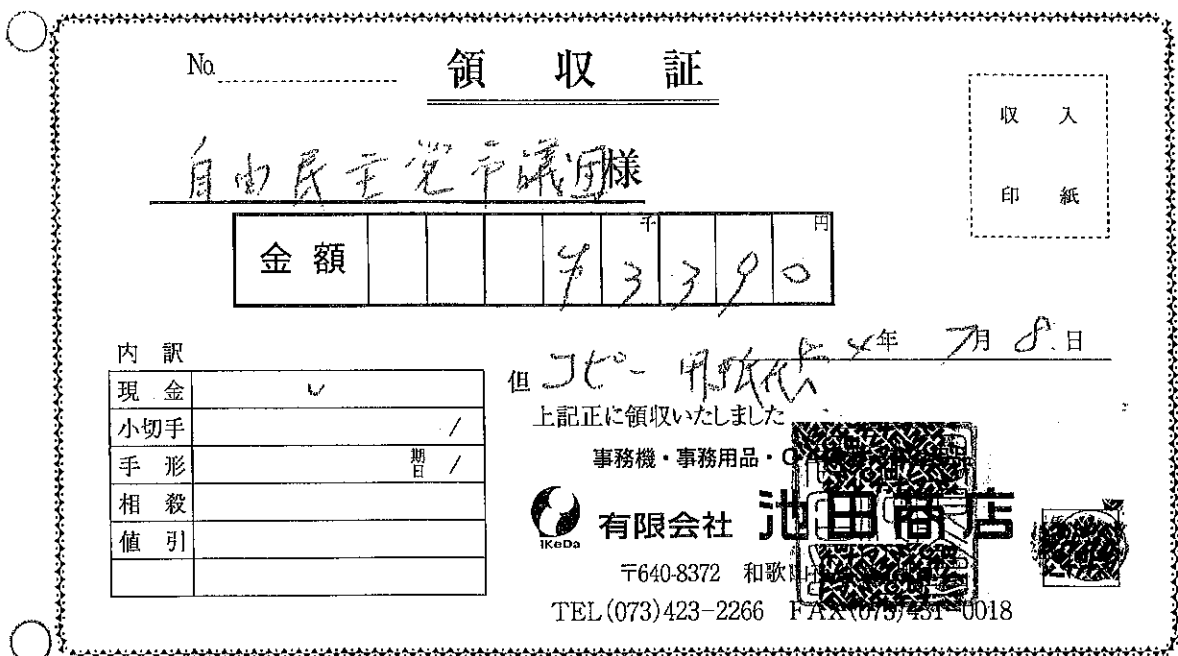 No.
領収証
収入
印紙
自由民主党市議団様
金額 千 円
¥3390
4年 7月 8日
内訳
現金 レ
小切手 /
手形 期日 /
相殺
値引
但 コピー用紙代
上記正に領収いたしました
事務機・事務用品・O
iKeDa
有限会社 池田商店
〒640-8372 和歌山
TEL(073)423-2266 FAX(073)431-0018